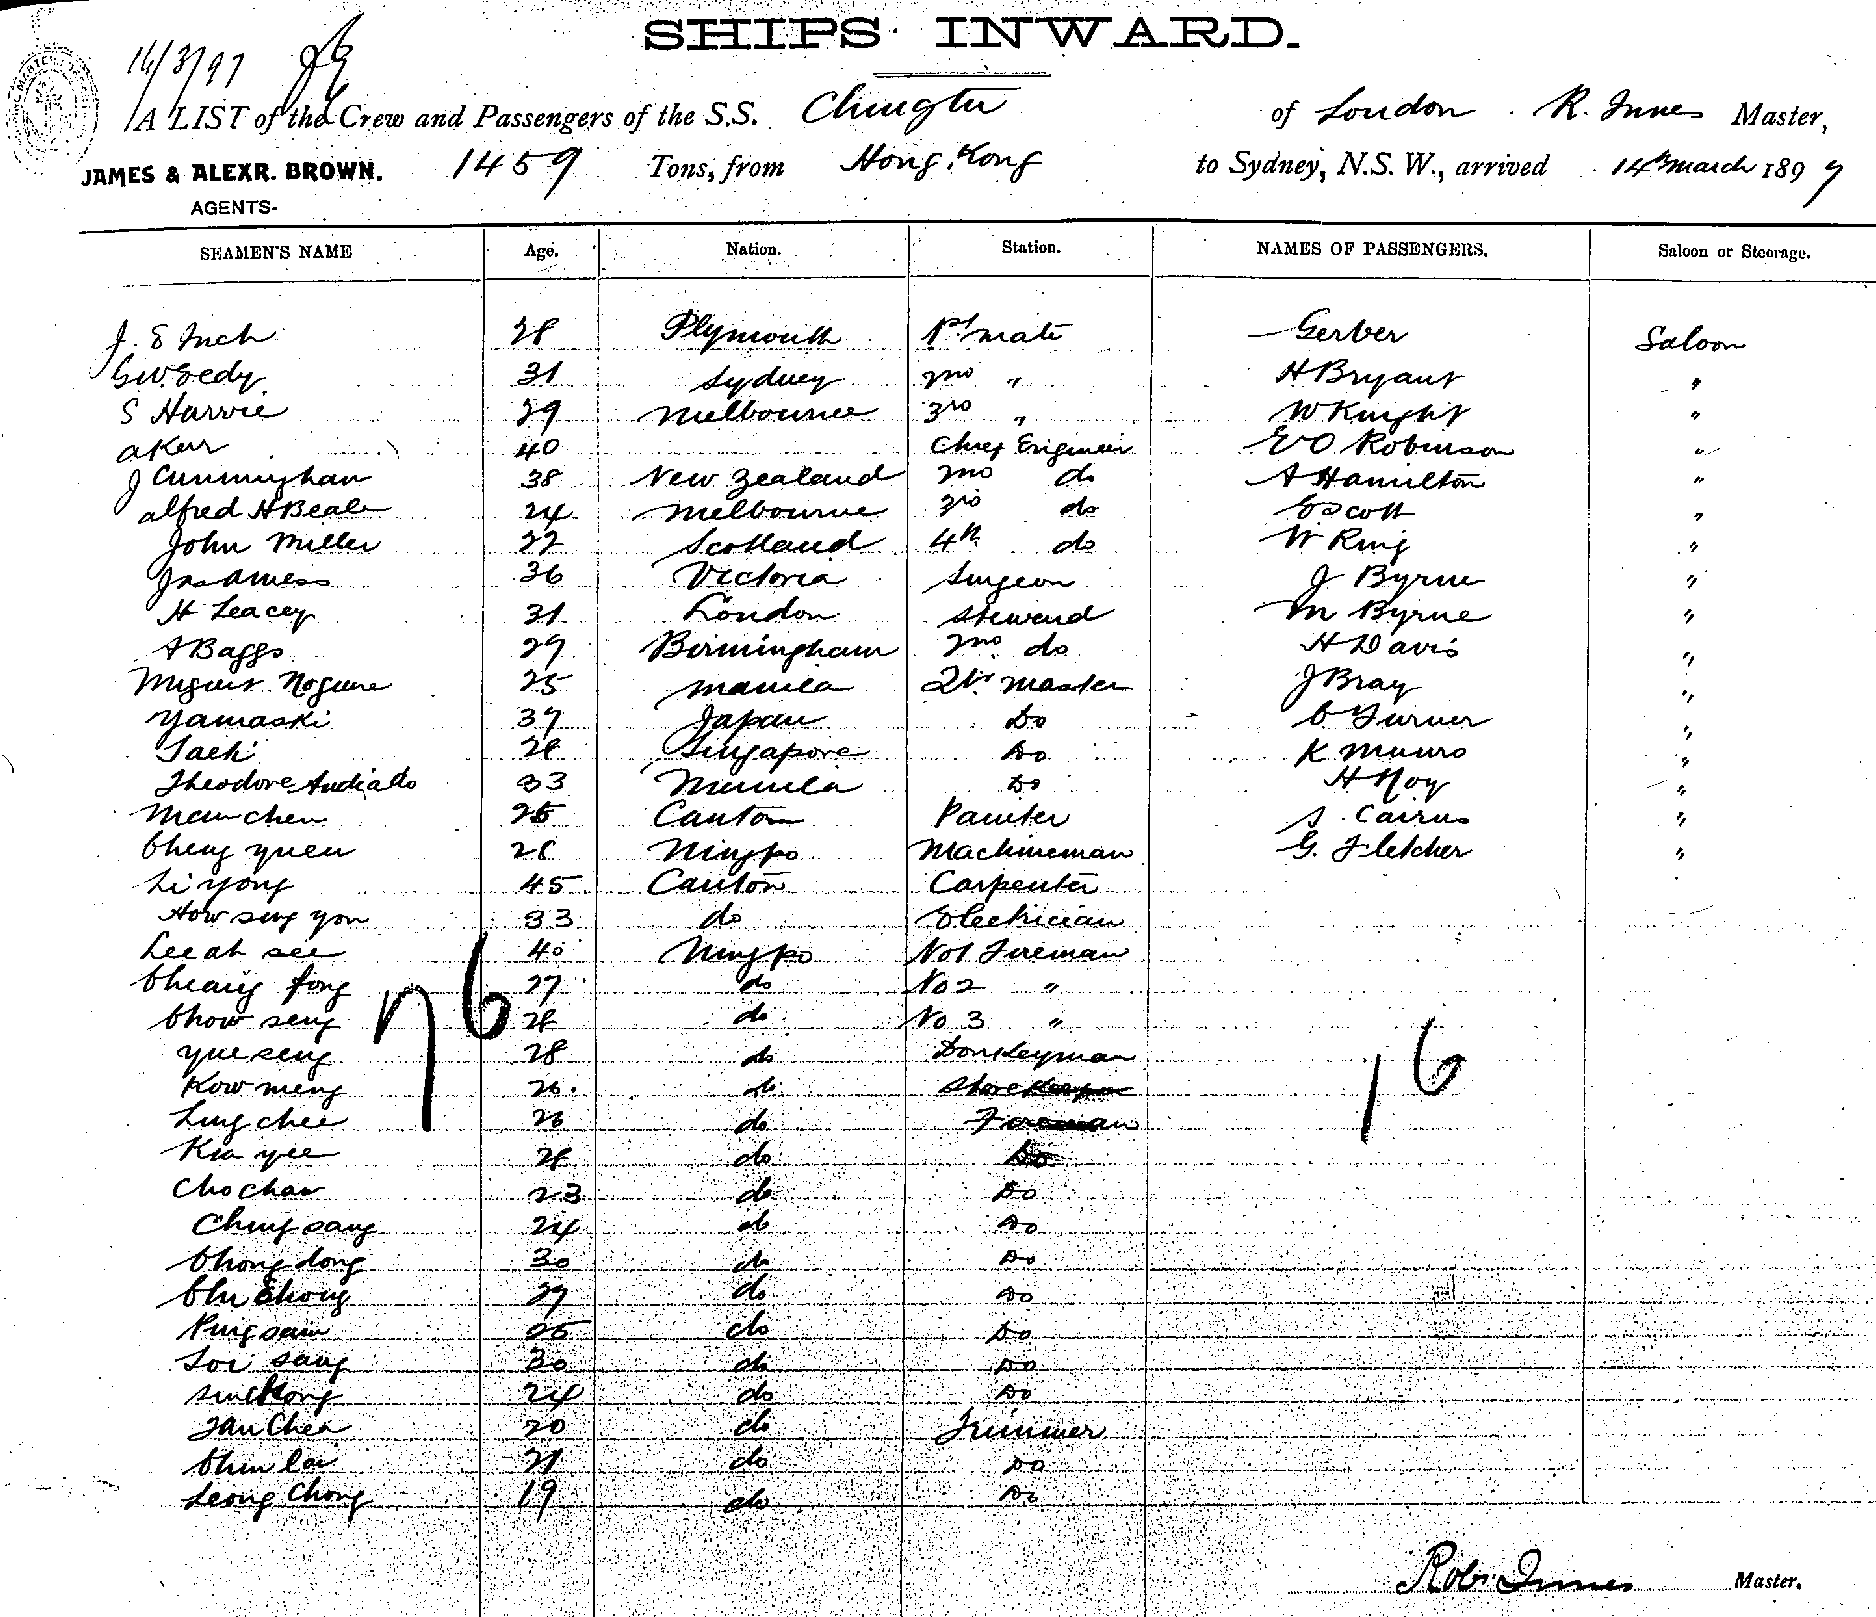 SHIPS INWARD.
A LIST of the Crew and Passengers of the S.S. Chingtu of London R. Innes Master,
JAMES & ALEXR. BROWN. 1459 Tons, from Hong Kong to Sydney, N.S.W., arrived 14th March 1897
AGENTS-
SEAMEN'S NAME Age. Nation. Station. NAMES OF PASSENGERS. Saloon or Steerage.
J. E Inch 28 Plymouth 1st mate Gerber Saloon
31 Sydney 2nd " H Bryant "
S Harvie 29 Melbourne 3rd " W Knight "
A Kerr 40 Chief Engineer E O Robinson "
J Cunningham 38 New Zealand 2nd do A Hamilton "
Alfred H Beale 24 Melbourne 3rd do E Scott "
John Miller 22 Scotland 4th do W Ring "
36 Victoria Surgeon J Byrne "
H Leacey 31 London Steward M Byrne "
A Baggs 29 Birmingham 2nd do H Davis "
25 Manila Qtr Master J Bray "
Yamaski 37 Japan Do C Turner "
28 Singapore Do K Munro "
Theodore 33 Manila Do H "
Man chen 25 Canton Painter S. Cairns "
Cheng yuen 28 Ningpo Machineman G. Fletcher "
Li yong 45 Canton Carpenter
How seng you 33 do Electrician
Lee ah see 40 Ningpo No 1 Fireman
Cheang fong 27 do No 2 "
Chow seng 28 do No 3 "
Yue seng 28 do Donkeyman
Kow meng 26. do Storekeeper
Ling chee 26 do Fireman
Kia yee 28 do Do
Cho chan 23 do Do
Ching sang 24 do Do
Chong dong 30 do Do
Chu Chong 29 do Do
Ping sam 25 do Do
Soi sang 30 do Do
24 do Do
Tan Chea 20 do Trimmer
Chin lai 21 do Do
Leong Chong 19 do Do
76
16
Robt Innes Master.